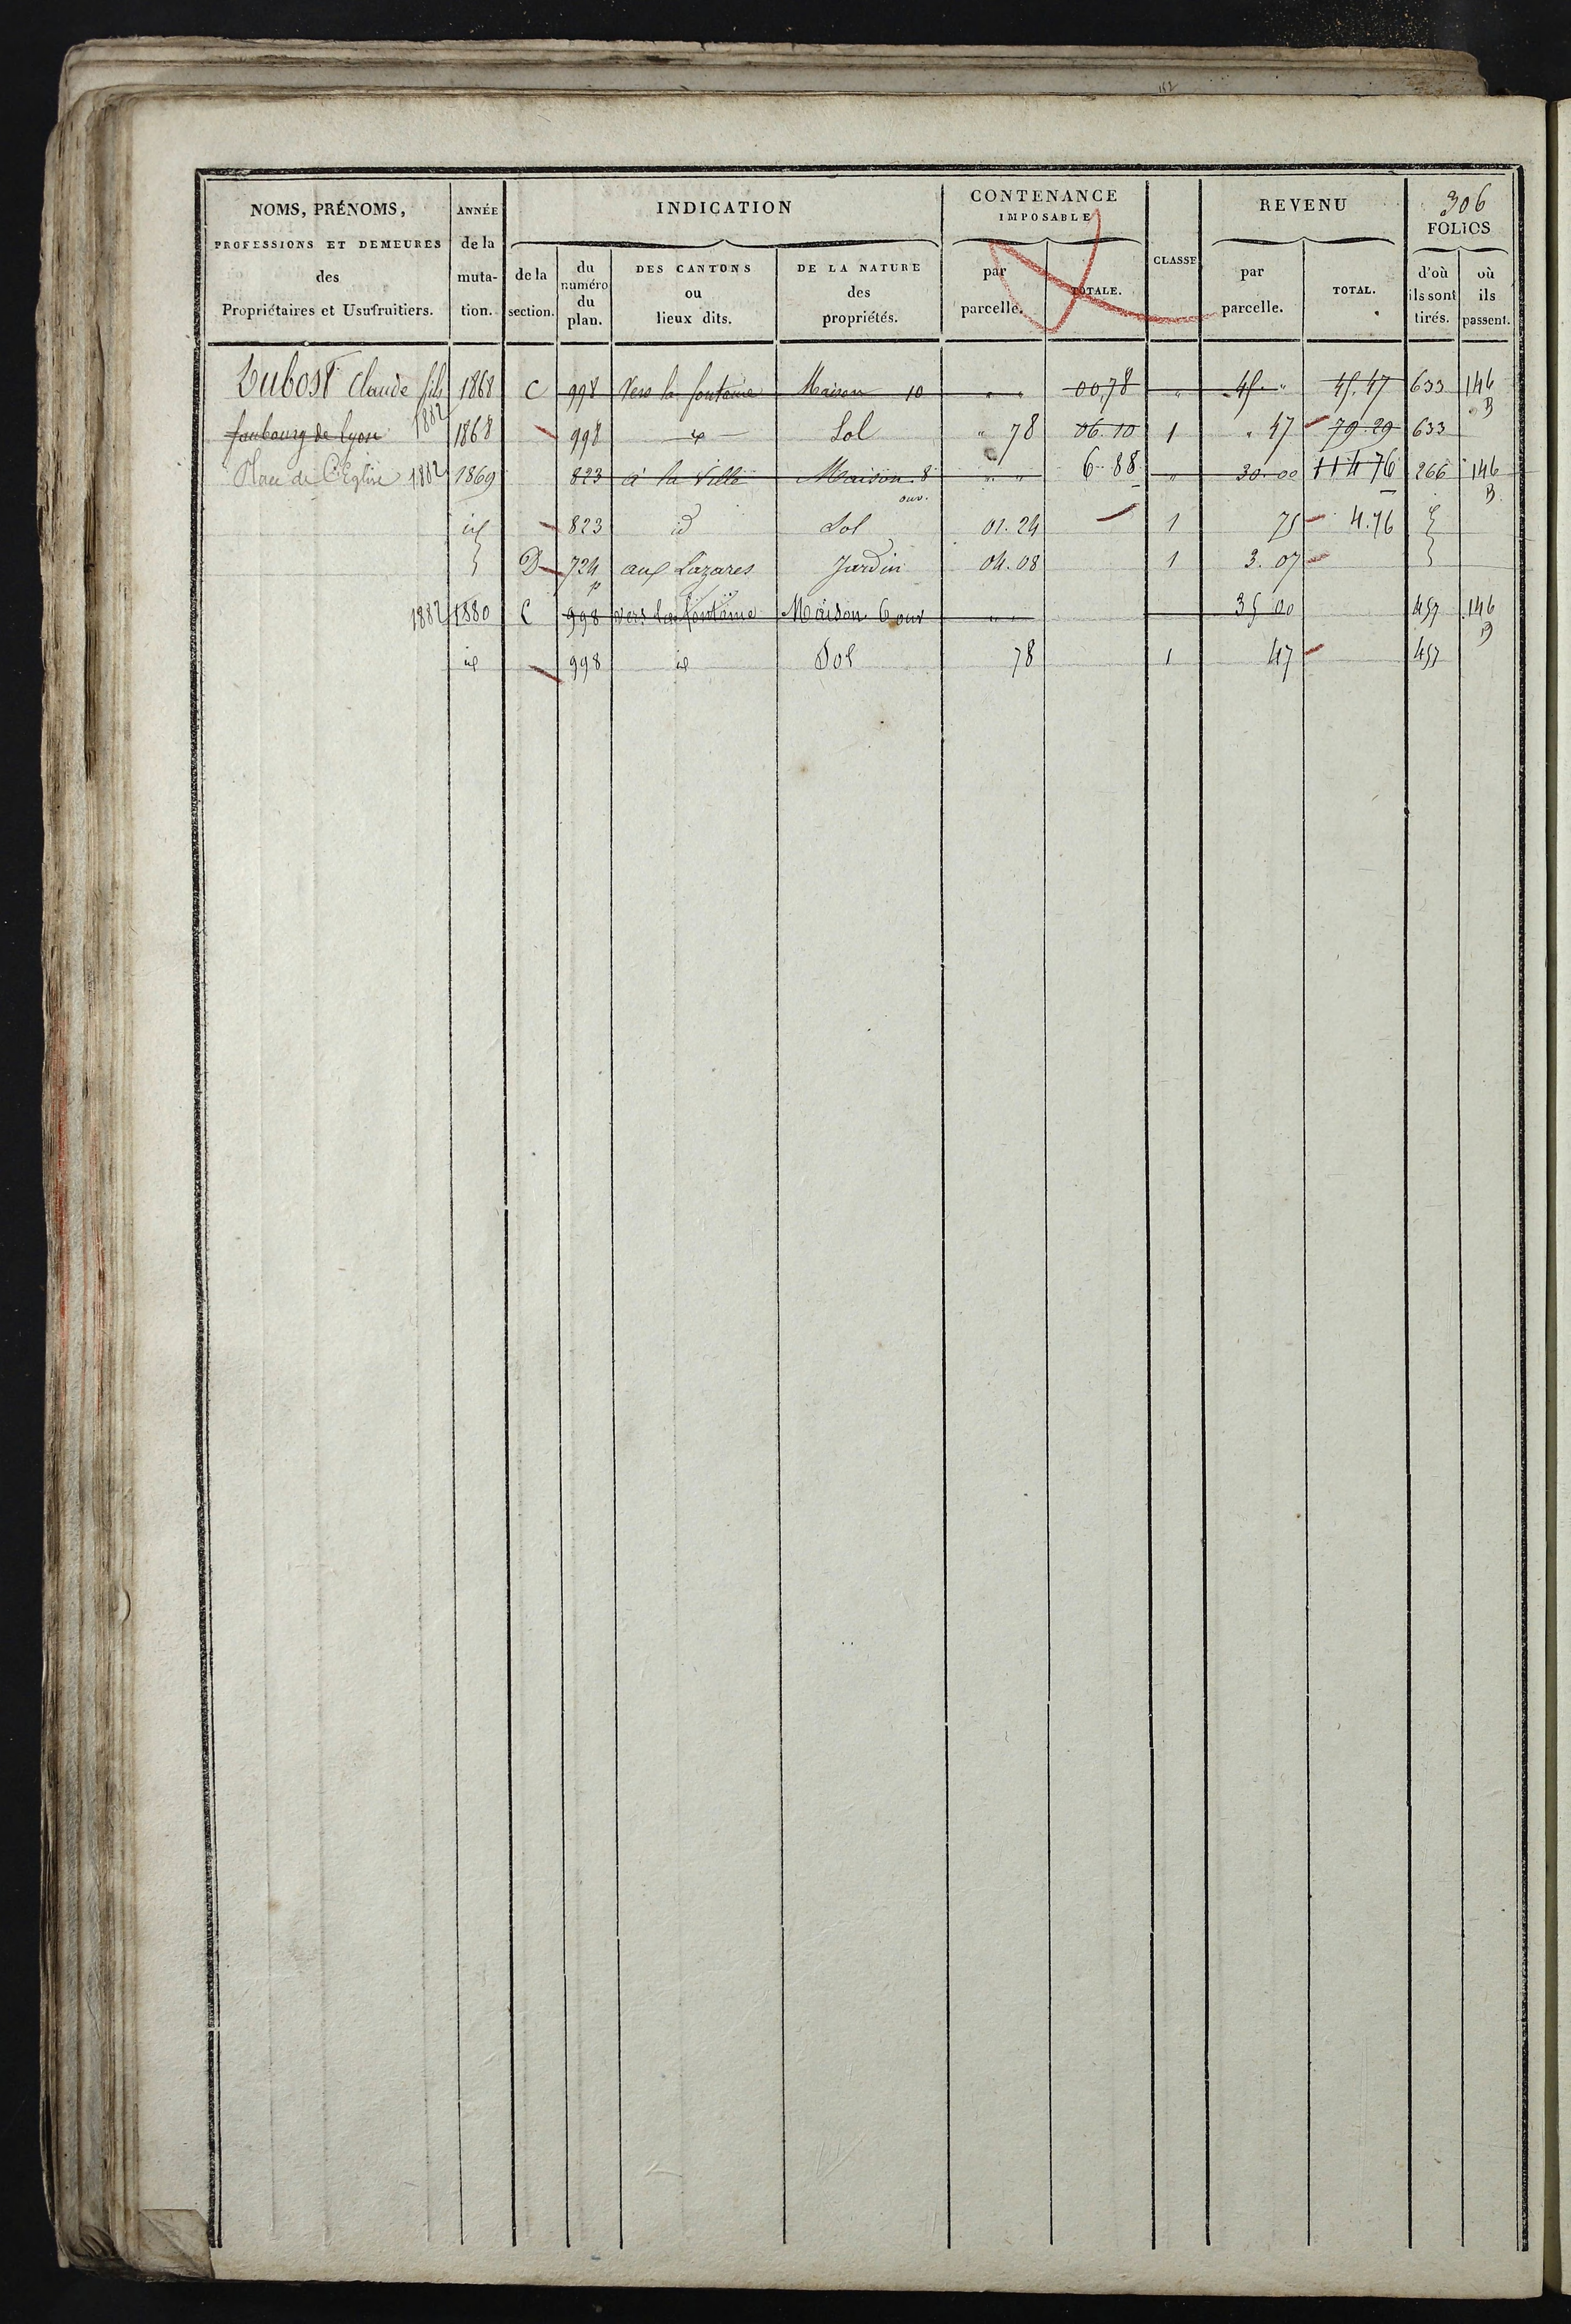 112
NOMS, PRÉNOMS, PROFESSIONS ET DEMEURES des Propriétaires et Usufruitiers.
ANNÉE de la muta- tion.
INDICATION
de la section.
du numéro du plan.
DES CANTONS ou lieux dits.
DE LA NATURE des propriétés.
CONTENANCE IMPOSABLE
par parcelle.
TOTALE.
CLASSE
REVENU
par parcelle.
TOTAL.
306
FOLIOS
d'où ils sont tirés.
où ils passent.
Dubost Claude fils 1868 C 998 Vers la fontaine Maison 10 " " 00.78 " 45. " 45.47 633 146 B
faubourg de Lyon 1882 1868 998 id Sol " 78 06.10 1 " 47 79.29 633
Place de l'Eglise 1882 1869 823 à la Ville Maison 8 ouv. " " 6-88 " 30.00 114 76 266 146 B
id 823 id Sol 01.24 1 75 4.76
D 724 p aux Lazares Jardin 04.08 1 3.07
1882 1880 C 998 vers la fontaine Maison 6 ouv " " 35 00 457 146 B
id 998 id Sol 78 1 47 457